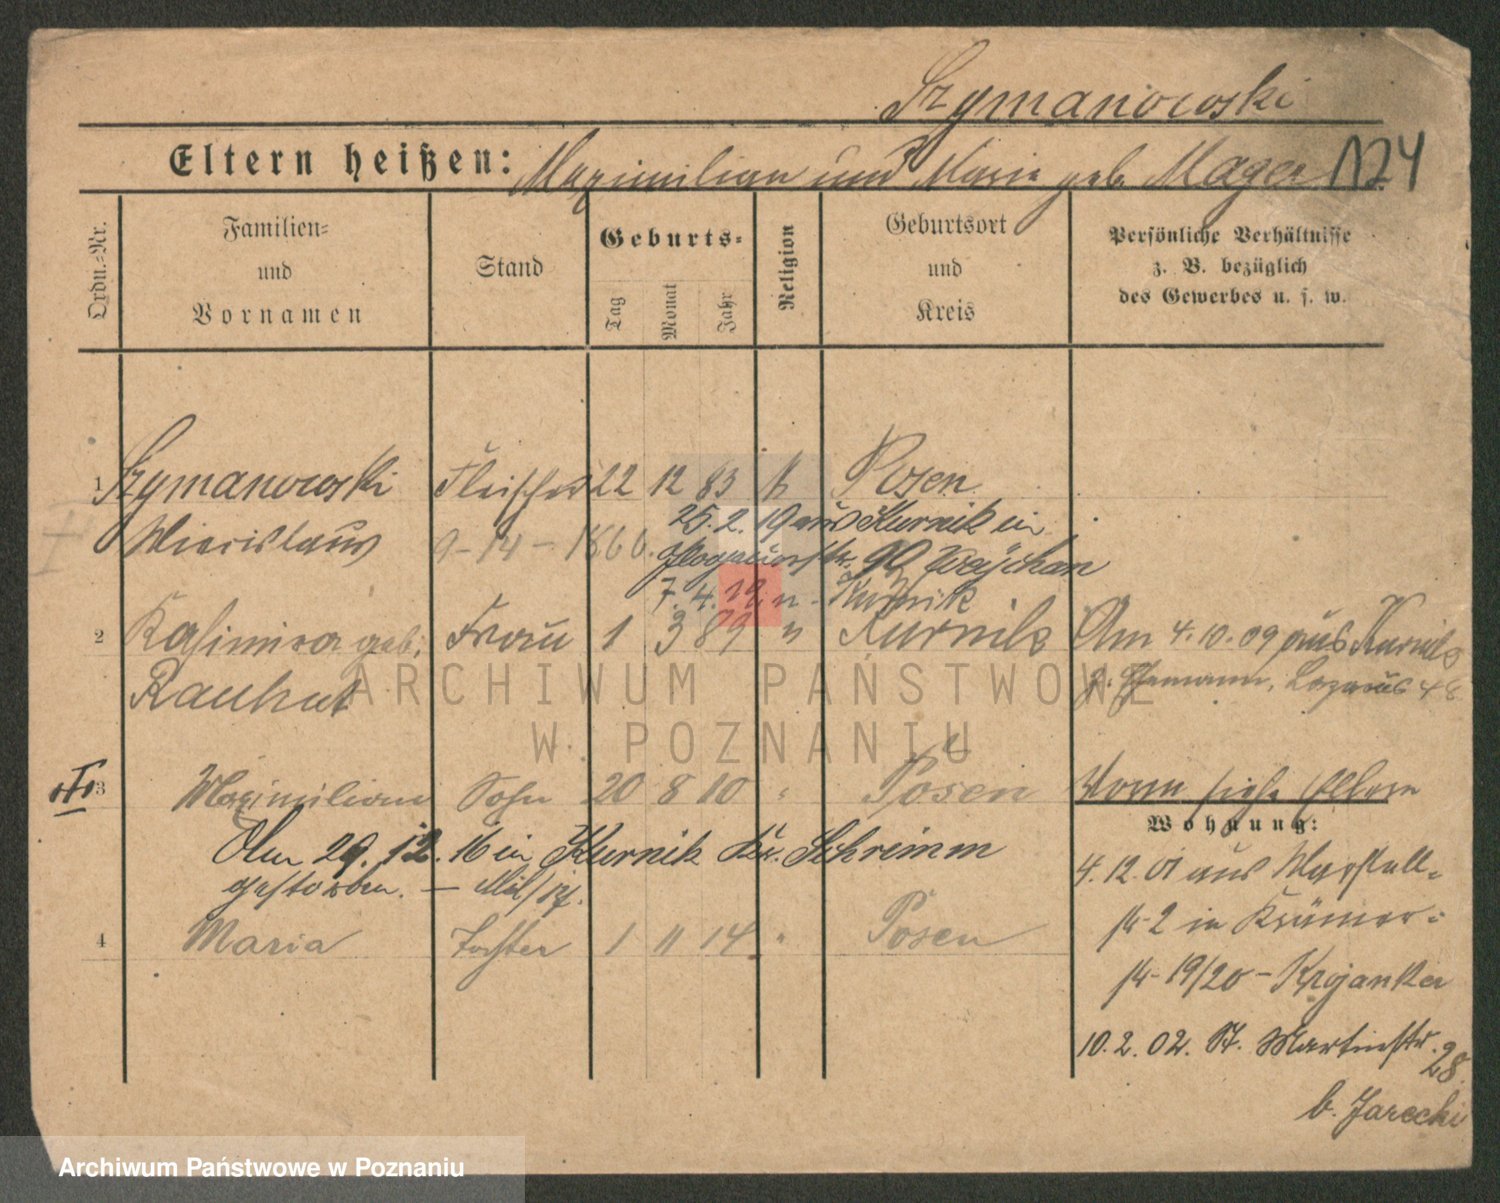 Szymanowski
Eltern heißen: Maximilian und Marie geb. Mager 124
Ordn.-Nr.
Familien-
und
Vornamen
Stand
Geburts-
Tag
Monat
Jahr
Religion
Geburtsort
und
Kreis
Persönliche Verhältnisse
z. B. bezüglich
des Gewerbes u. s. w.
1 Szymanowski Fleischer 22 12 83 k Posen
25. 2. 19 aus Kurnik in
9-14-1866.
90
7. 4. 19 n. Kurnik
2 Kasimira geb. Frau 1 3 89 " Kurnik Am 4. 10. 09 aus Kurnik
Rauhut z. Ehemann, Lazarus
3 Maximilian Sohn 20 8 10 " Posen Vorm siehe Eltern
Am 29. 12. 16 in Kurnik Kr. Schrimm
gestorben. —
4 Maria Tochter 1 11 14 " Posen
Wohnung:
4. 12. 01 aus Marstall-
str 2 in Krämer-
str 19/20 - Krojanker
10. 2. 02. St. Martinstr. 28
b. Jarecki
ARCHIWUM PAŃSTWOWE
W POZNANIU
Archiwum Państwowe w Poznaniu